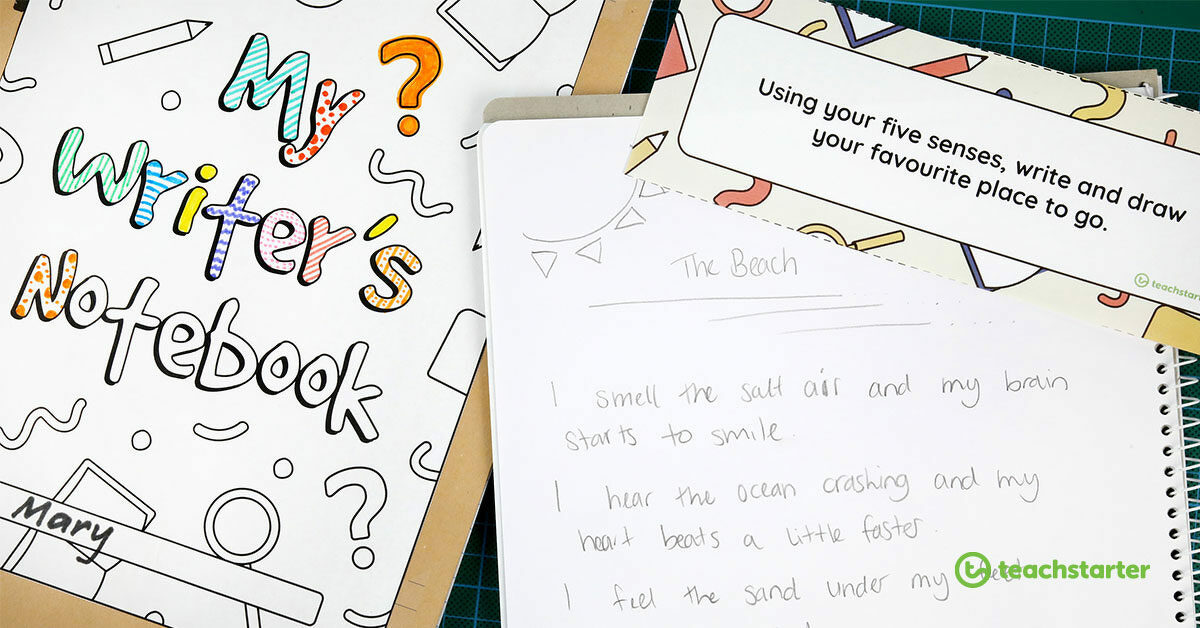 My
Writer's
Notebook
Mary
Using your five senses, write and draw
your favourite place to go.
teachstarter
The Beach
I smell the salt air and my brain
starts to smile.
I hear the ocean crashing and my
heart beats a little faster.
I feel the sand under my
teachstarter